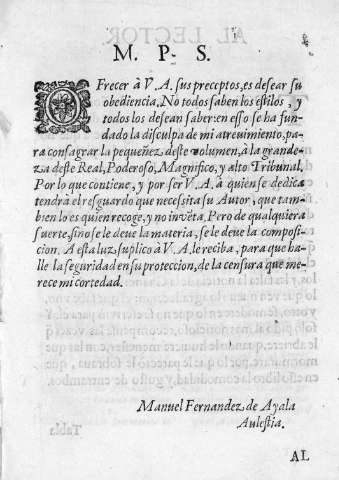 M. P. S.
OFrecer à V. A. sus preceptos, es desear su
obediencia. No todos saben los estilos, y
todos los desean saber: en esso se ha fun-
dado la disculpa de mi atrevimiento, pa-
ra consagrar la pequeñez deste volumen, à la grande-
za deste Real, Poderoso, Magnifico, y alto Tribunal.
Por lo que contiene, y por ser V. A. à quien se dedica
tendrà el resguardo que necessita su Autor, que tam-
bien lo es quien recoge, y no invẽta. Pero de qualquiera
suerte, sino se le deve la materia, se le deve la composi-
cion. A esta luz, suplico à V. A. le reciba, para que ha-
lle la seguridad en su proteccion, de la censura que me-
rece mi cortedad.
Manuel Fernandez de Ayala
Aulestia.
AL